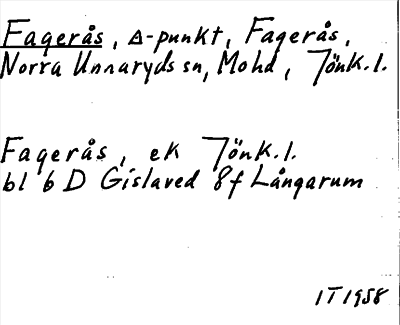 Fagerås, ∆-punkt, Fagerås,
Norra Unnaryds sn, Mohd, Jönk.l.
Fagerås, ek Jönk.l.
bl 6 D Gislaved 8f Långarum
IT 1958